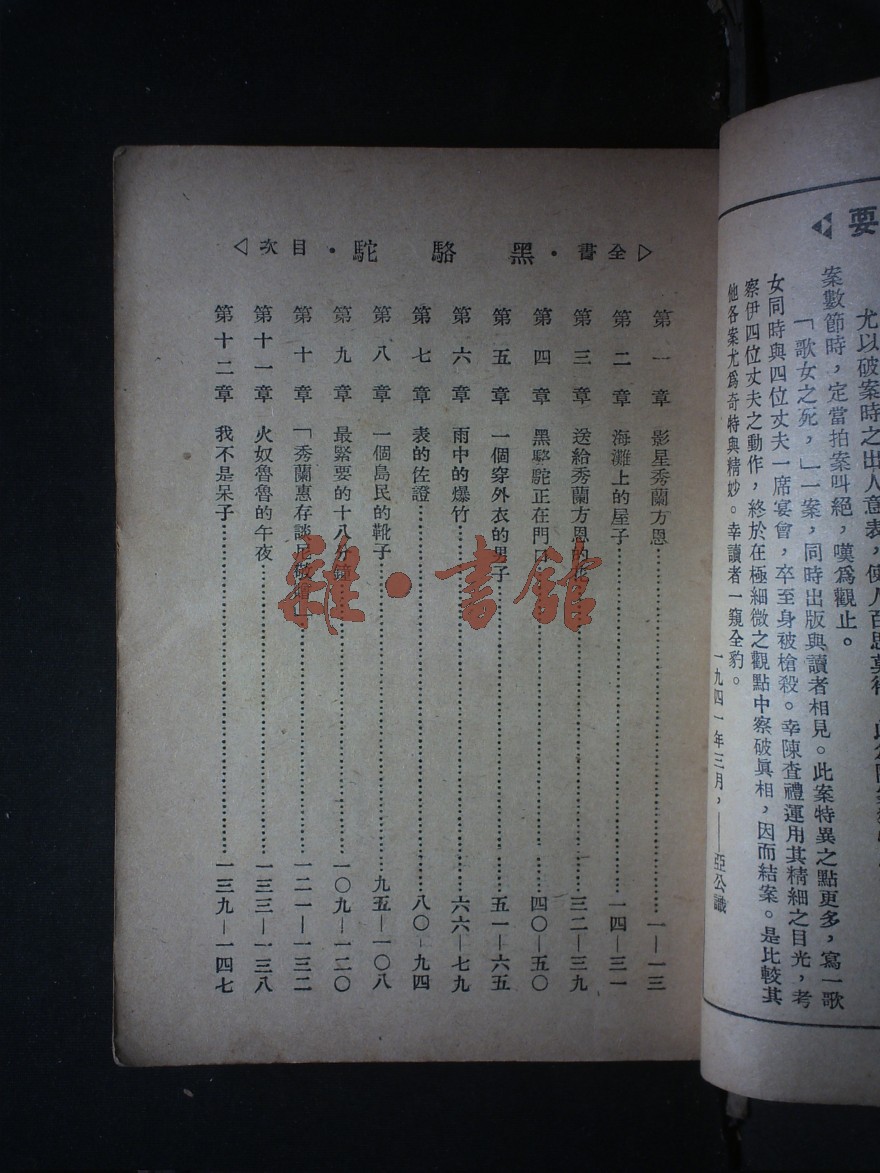 要
尤以破案時之出人意表,使人百思莫得
案數節時,定當拍案叫絕,嘆爲觀止。
「歌女之死,」一案,同時出版與讀者相見。此案特異之點更多,寫一歌
女同時與四位丈夫一席宴會,卒至身被槍殺。幸陳查禮運用其精細之目光,考
察伊四位丈夫之動作,終於在極細微之觀點中察破眞相,因而結案。是比較其
他各案尤爲奇特與精妙。幸讀者一窺全豹。
一九四一年三月,——亞公識
▷全書·黑駱駝·目次◁
第一章 影星秀蘭方恩……一—一三
第二章 海灘上的屋子……一四—三一
第三章 送給秀蘭方恩的花……三二—三九
第四章 黑駱駝正在門口……四〇—五〇
第五章 一個穿外衣的男子……五一—六五
第六章 雨中的爆竹……六六—七九
第七章 表的佐證……八〇—九四
第八章 一個島民的靴子……九五—一〇八
第九章 最緊要的十八分鐘……一〇九—一二〇
第十章 「秀蘭惠存談尼敬贈」……一二一—一三二
第十一章 火奴魯魯的午夜……一三三—一三八
第十二章 我不是呆子……一三九—一四七
雜·書館